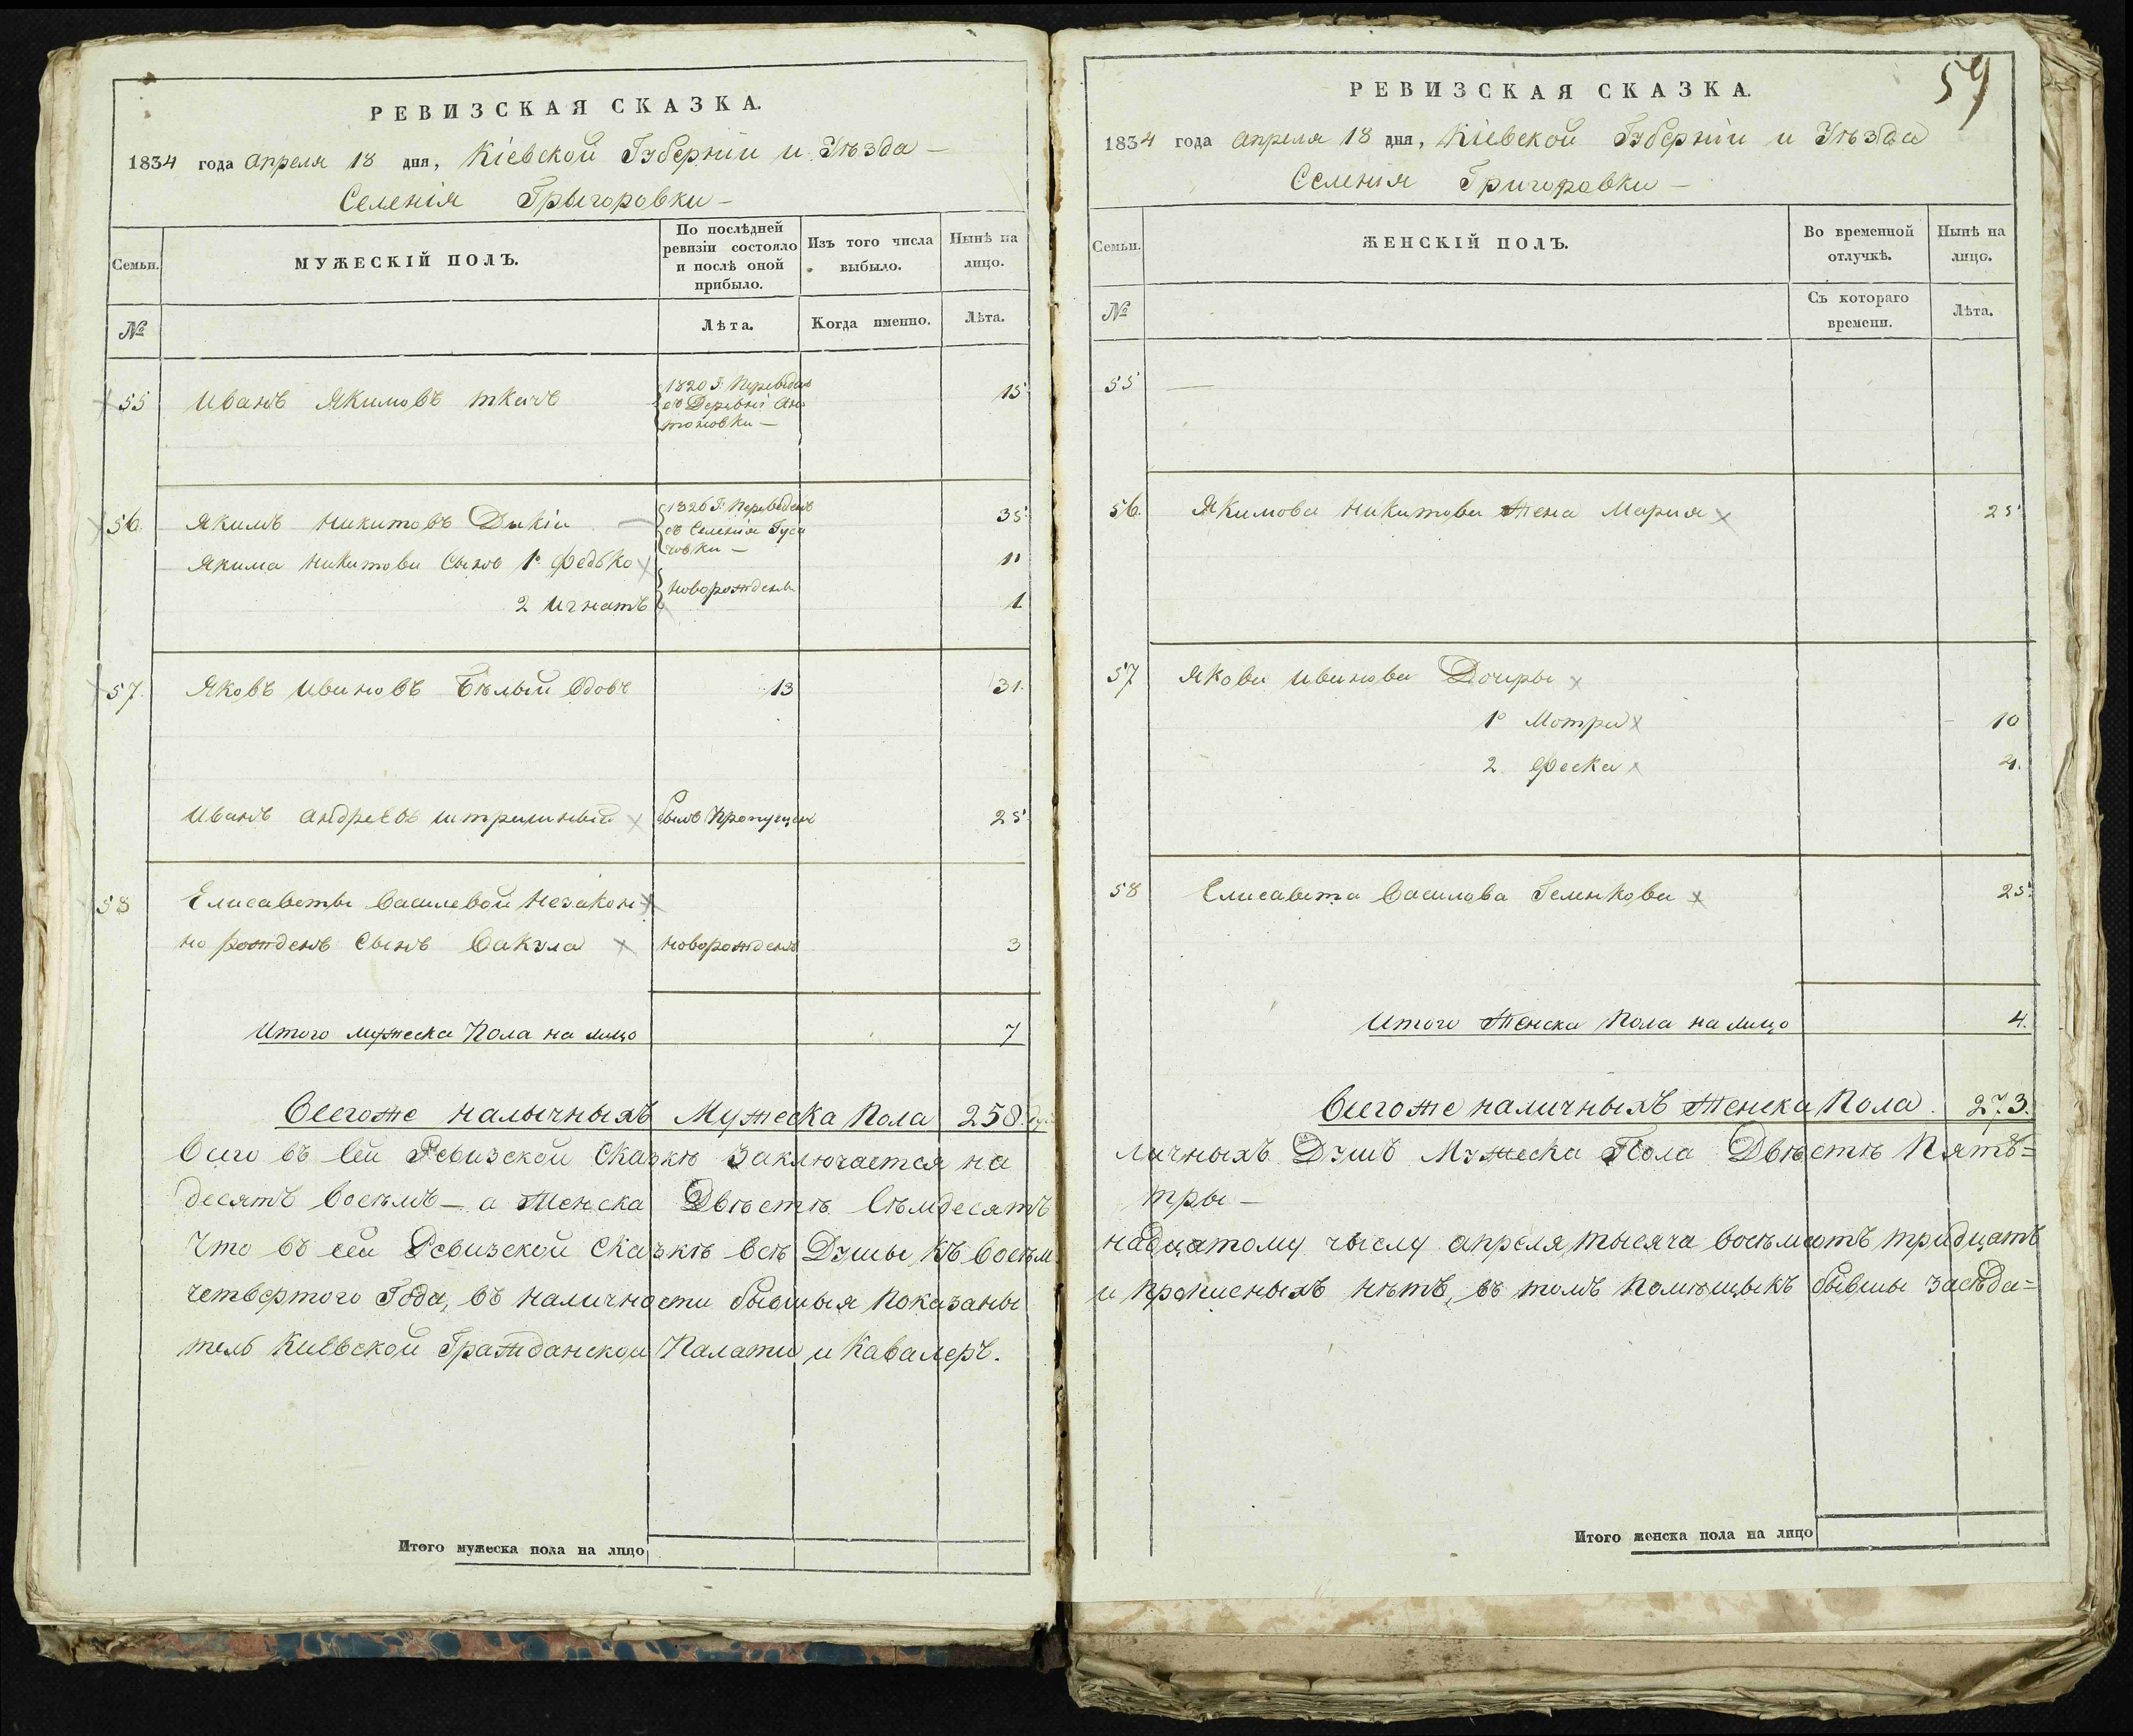 РЕВИЗСКАЯ СКАЗКА.
1834 года Апреля 18 дня, Кіевской Губерніи и Уѣзда —
Селенія Грыгоровки —
Семьи.
МУЖЕСКІЙ ПОЛЪ.
По послѣдней ревизіи состояло и послѣ оной прибыло.
Изъ того числа выбыло.
Нынѣ на лицо.
№
Лѣта.
Когда именно.
Лѣта.
55 Иванъ Якимовъ ткачъ 15
1820 г: Переведенъ
съ Деревнi Ан
тоновки —
56. Якимъ Никитовъ Дикiи — 35
1826 г: Переведенъ
съ Селенія Гуса
човки —
Якима Никитова Сынов 1й Федько 11
2 Игнатъ новорожденны 1
57. Яковъ Ивановъ Бѣлый Вдовъ 13 31.
Иванъ Андреевъ былъ Пропущенъ 25
58 Елисаветы Василевой Незакон
но рожденъ Сынъ Вакула новорожденъ 3
Итого мужеска Пола на лицо 7
Всегоже налычныхъ Мужеска Пола 258.
Всего въ Сей Ревизской Сказкѣ Заключается на
десятъ восѣмъ — а Женска Двѣстѣ Сѣмдесятъ
Что въ сей Ревизской Сказкѣ всѣ Душы къ восѣм
четвертого Года, въ наличности бывшыя показаны
тель Киевской Гражданской Палаты и Кавалеръ.
Итого мужеска пола на лицо
59
РЕВИЗСКАЯ СКАЗКА.
1834 года Апреля 18 дня, Кіевской Губерніи и Уѣзда
Селенія Григоровки —
Семьи.
ЖЕНСКІЙ ПОЛЪ.
Во временной отлучкѣ.
Нынѣ на лицо.
№
Съ котораго времени.
Лѣта.
55 —
56. Якимова Никитова Жена Мария 25
57 Якова Иванова Дочеры
1й Мотря 10
2 Феска 4.
58 Елисавета Василова 25.
Итого Женска Пола на лицо 4.
Всегоже наличныхъ Женска Пола. 273.
личныхъ Душъ Мужеска Пола Двѣстѣ Пятъ=
тры —
надцатому чыслу апреля тысяча восѣмсотъ тридцатъ
и прописныхъ нѣтъ, въ томъ Помѣщыкъ бывшы засѣда=
Итого женска пола на лицо